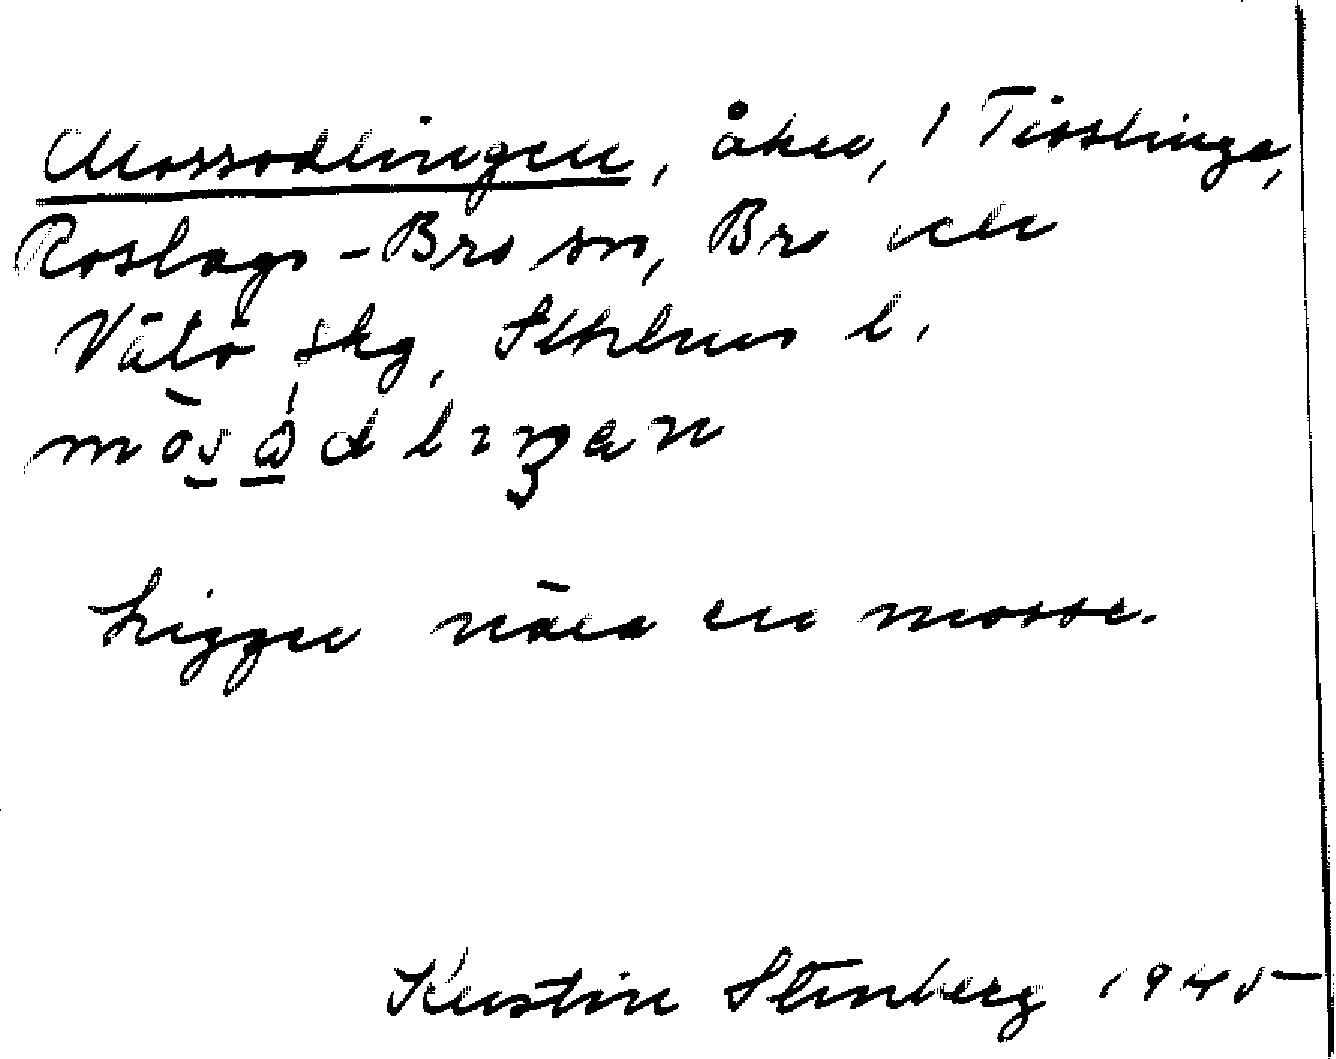 Mossodlingen, åker, 1 Tisslinge,
Roslags-Bro sn, Bro och
Vätö skg, Sthlms l.
mòsώ̲dlıŋən
Ligger nära en mosse.
Kerstin Stenberg 1945